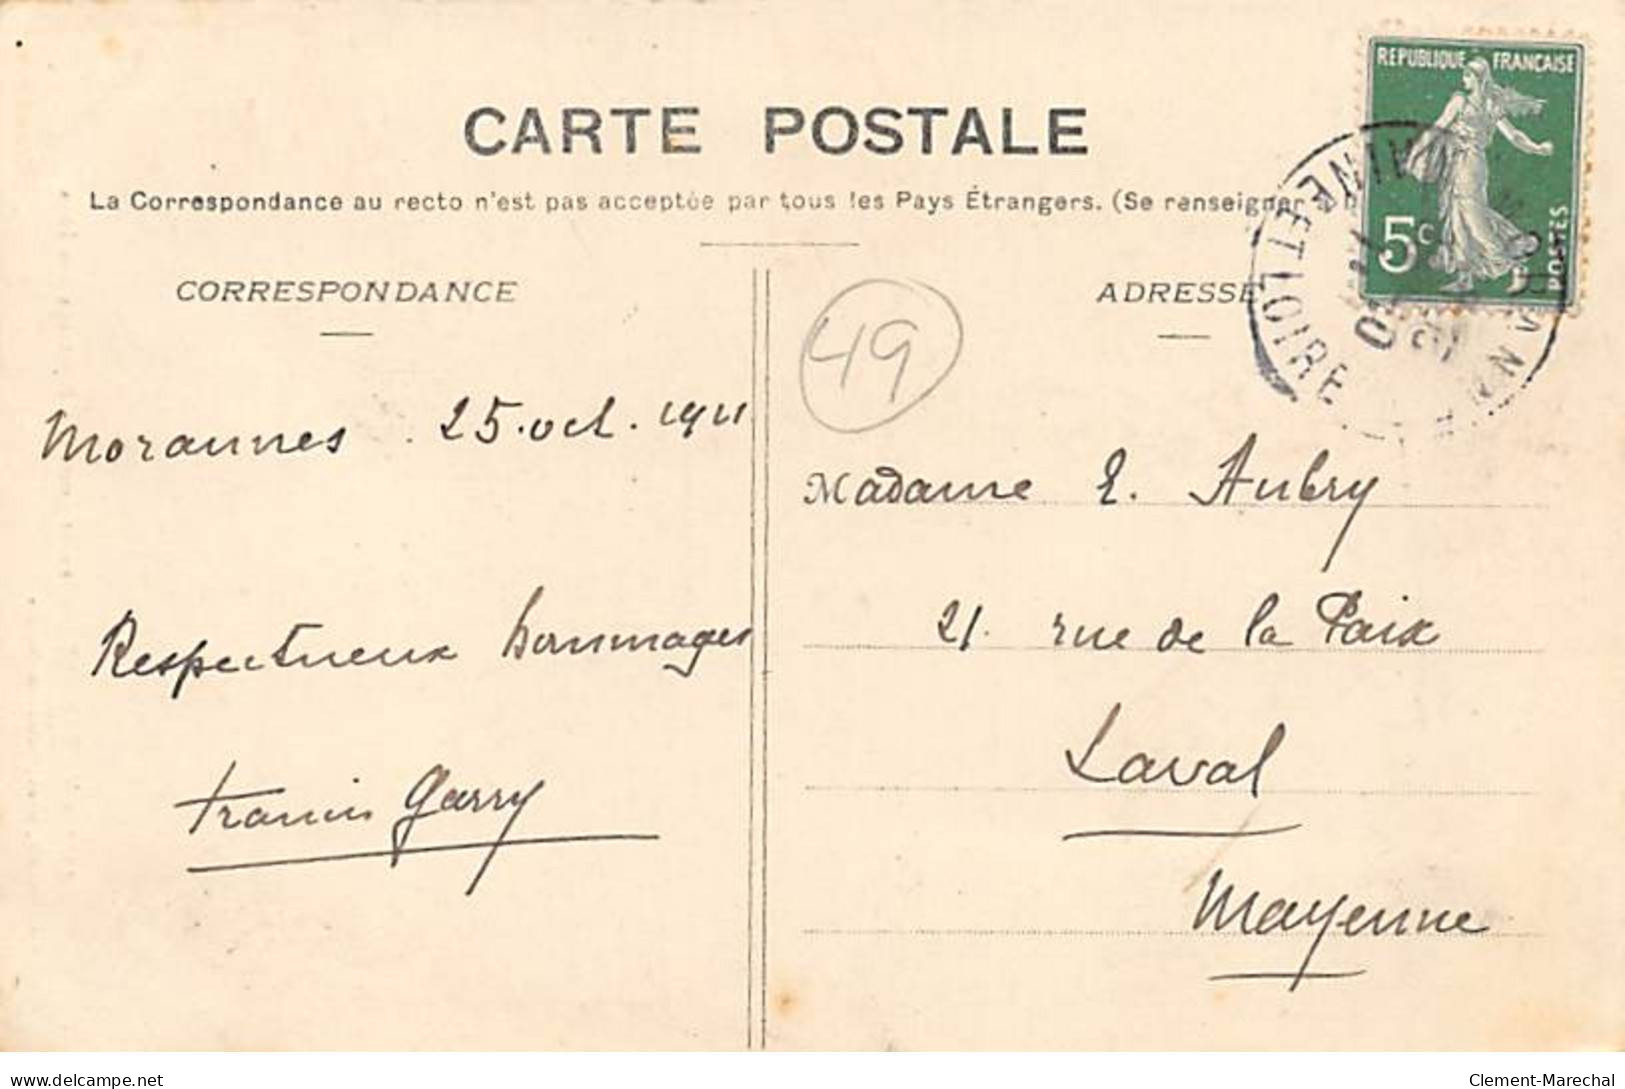 REPUBLIQUE FRANCAISE
5c
POSTES
CARTE POSTALE
La Correspondance au recto n'est pas acceptée par tous les Pays Étrangers. (Se renseigner
MAINE ET LOIRE
CORRESPONDANCE
ADRESSE
49
Morannes. 25. oct. 1911
Respectueux hommages
Francis Garry
Madame E. Aubry
21. rue de la Paix
Laval
Mayenne
delcampe.net
Clement-Marechal